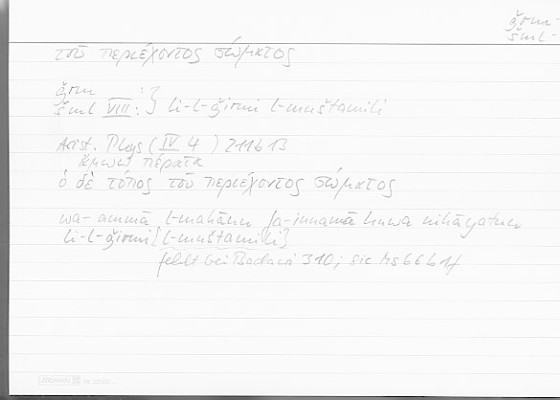 ǧrm
šml-
τοῦ περιέχοντος σώματος
ǧrm :
šml VIII : } li-l-ǧirmi l-muštamili
Arist. Phys (IV 4) 211b13
πέρατα
ὁ δὲ τόπος τοῦ περιέχοντος σώματος
wa-ammā l-makānu fa-innamā huwa nihāyatun
li-l-ǧirmi [l-muštamili]
fehlt bei Badawi 310; sic Hs 66b